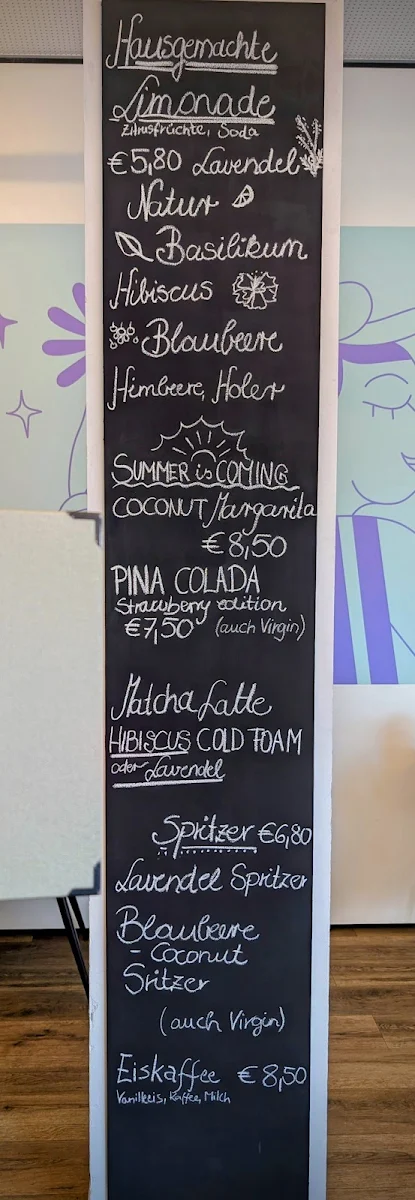 Hausgemachte
Limonade
Zitrusfrüchte, Soda
€5,80 Lavendel
Natur
Basilikum
Hibiscus
Blaubeere
Himbeere, Holer
SUMMER is COMING
COCONUT Margarita
€8,50
PINA COLADA
Strawberry edition
€7,50 (auch Virgin)
Matcha Latte
HIBISCUS COLD FOAM
oder Lavendel
Spritzer €6,80
Lavendel Spritzer
Blaubeere
- Coconut
Sritzer
(auch Virgin)
Eiskaffee €8,50
Vanilleeis, Kaffee, Milch